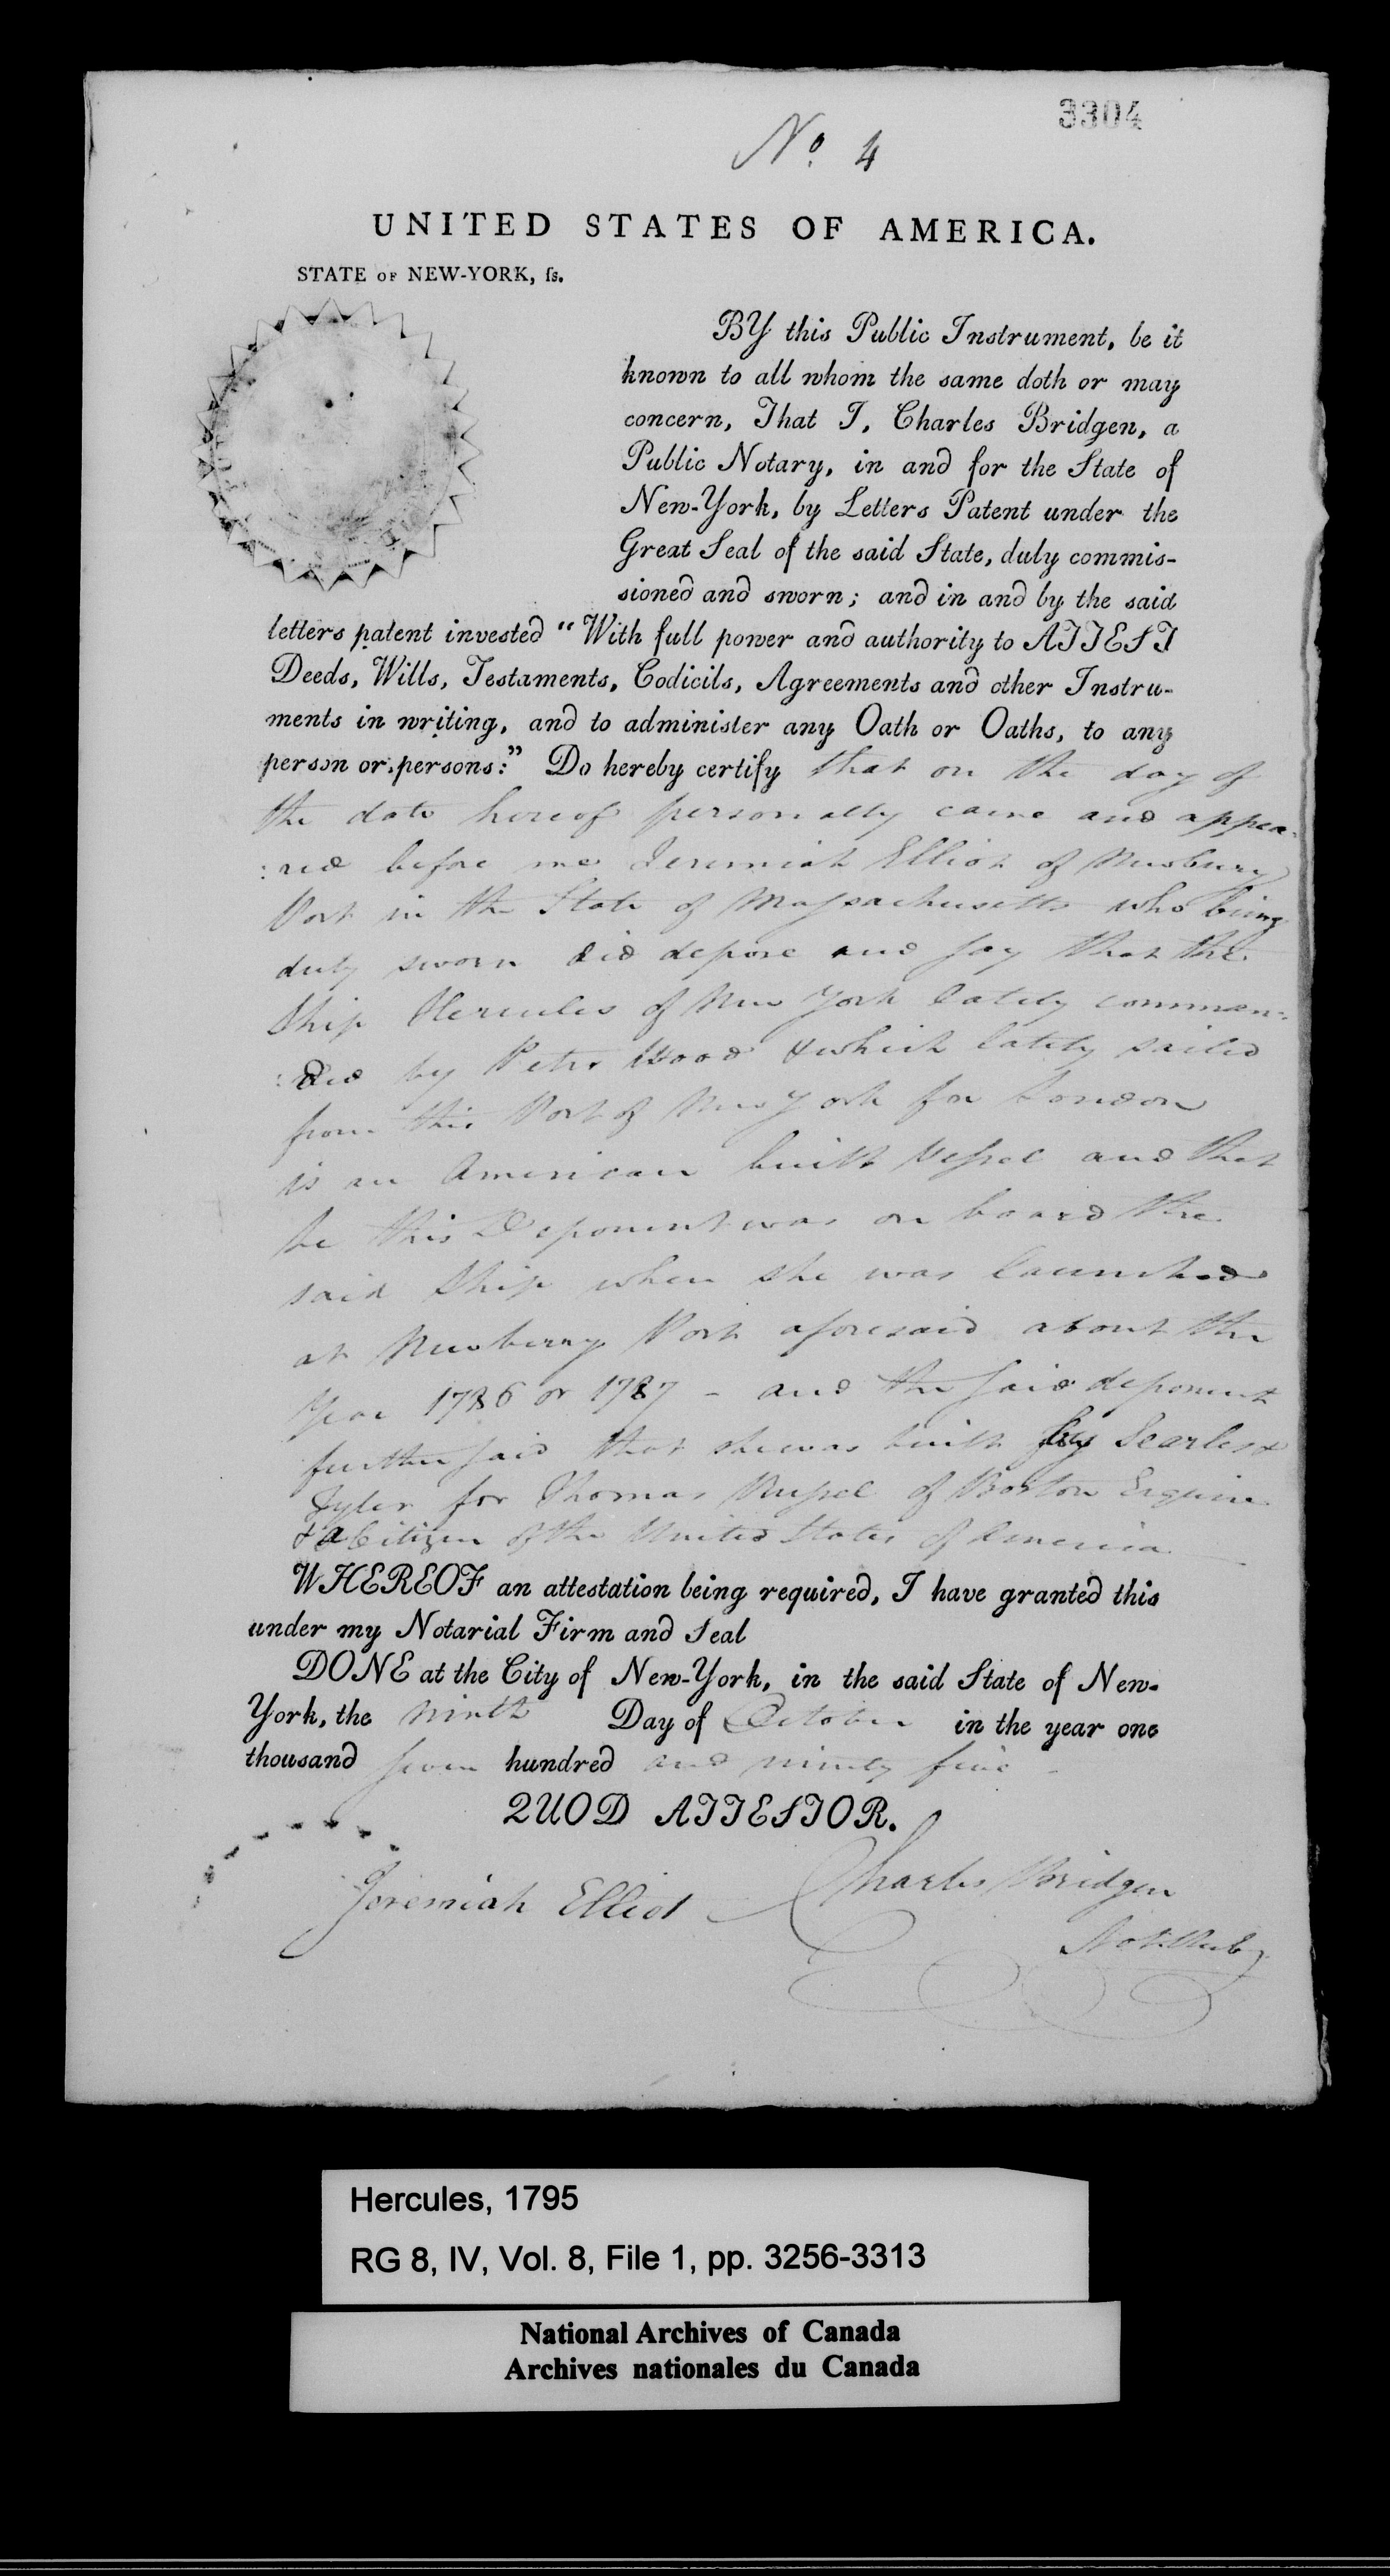 3304
No. 4
UNITED STATES OF AMERICA.
STATE OF NEW-YORK, ſs.
BY this Public Instrument, be it
known to all whom the same doth or may
concern, That I, Charles Bridgen, a
Public Notary, in and for the State of
New-York, by Letters Patent under the
Great Seal of the said State, duly commis-
sioned and sworn; and in and by the said
letters patent invested “With full power and authority to ATTEST
Deeds, Wills, Testaments, Codicils, Agreements and other Instru-
ments in writing, and to administer any Oath or Oaths, to any
person or persons:” Do hereby certify that on the day of
the date hereof personally came and appea-
:red before me Jeremiah Elliot of Newbury
Port in the State of Massachusetts who being
duly sworn did depose and say that the
Ship Hercules of New York lately comman-
:ded by Peter Wood & which lately sailed
from this Port of New York for London
is an American built Vessel and that
he this Deponent was on board the
said Ship when she was launched
at Newberry Port aforesaid about the
Year 1786 or 1787 – and the said deponent
further said that she was built by Searles &
Tyler for Thomas Russel of Boston Esquire
& a Citizen of the United States of America
WHEREOF an attestation being required, I have granted this
under my Notarial Firm and Seal
DONE at the City of New-York, in the said State of New-
York, the ninth Day of October in the year one
thousand seven hundred and ninety five
QUOD ATTESTOR.
Jeremiah Elliot Charles Bridgen
Not. Pub
Hercules, 1795
RG 8, IV, Vol. 8, File 1, pp. 3256-3313
National Archives of Canada
Archives nationales du Canada